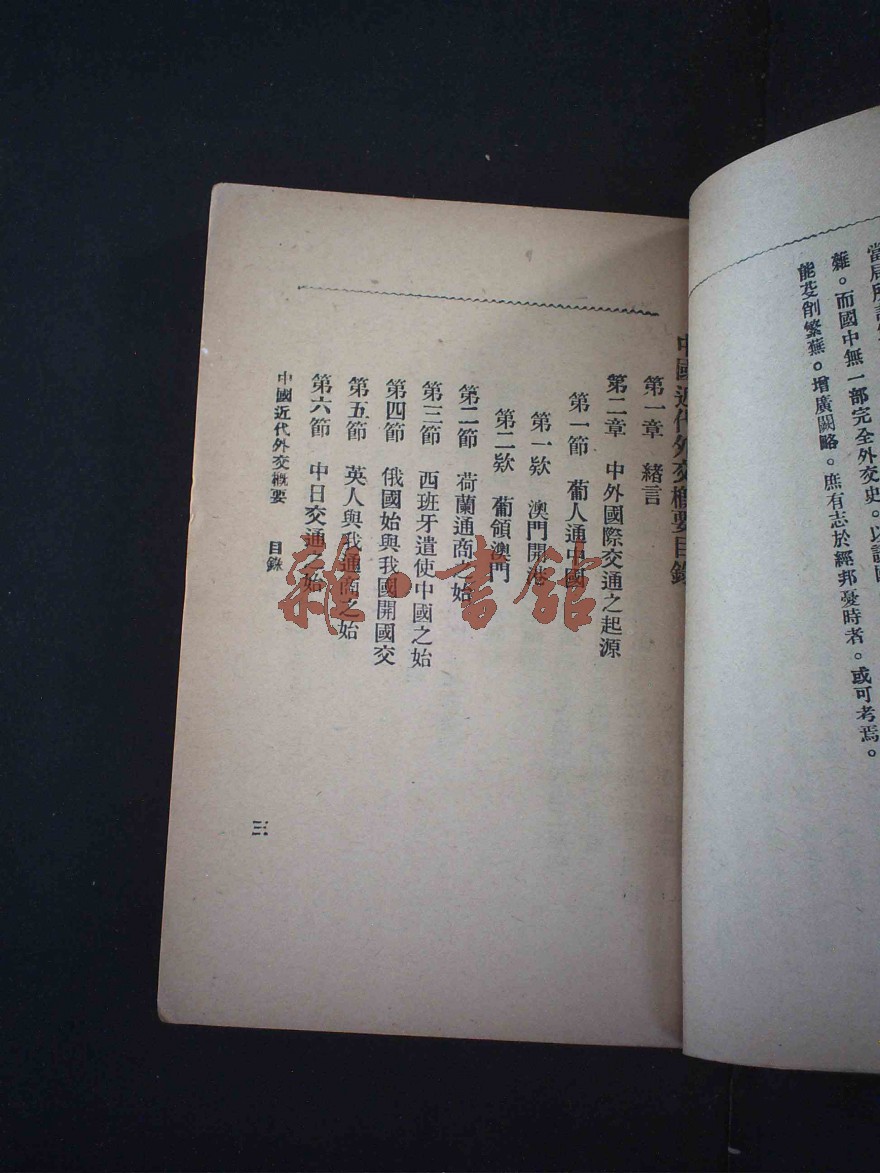 雜。而國中無一部完全外交史。以
能芟削繁蕪。增廣闕略。庶有志於經邦憂時者。或可考焉。
中國近代外交概要目錄
第一章 緒言
第二章 中外國際交通之起源
第一節 葡人通中國
第一欵 澳門開港
第二欵 葡領澳門
第二節 荷蘭通商之始
第三節 西班牙遣使中國之始
第四節 俄國始與我國開國交
第五節 英人與我通商之始
第六節 中日交通之始
中國近代外交概要 目錄
三
雜·書館